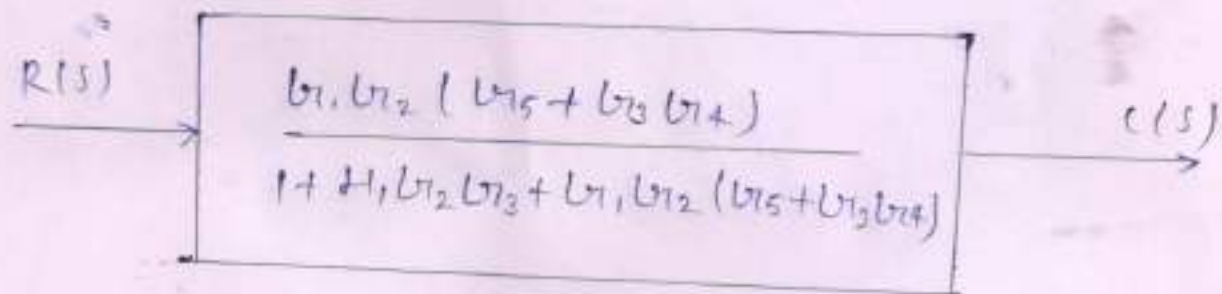 R(S)
G₁G₂ (G₅ + G₃ G₄)
1 + H₁G₂G₃ + G₁G₂ (G₅+G₃G₄)
C(S)